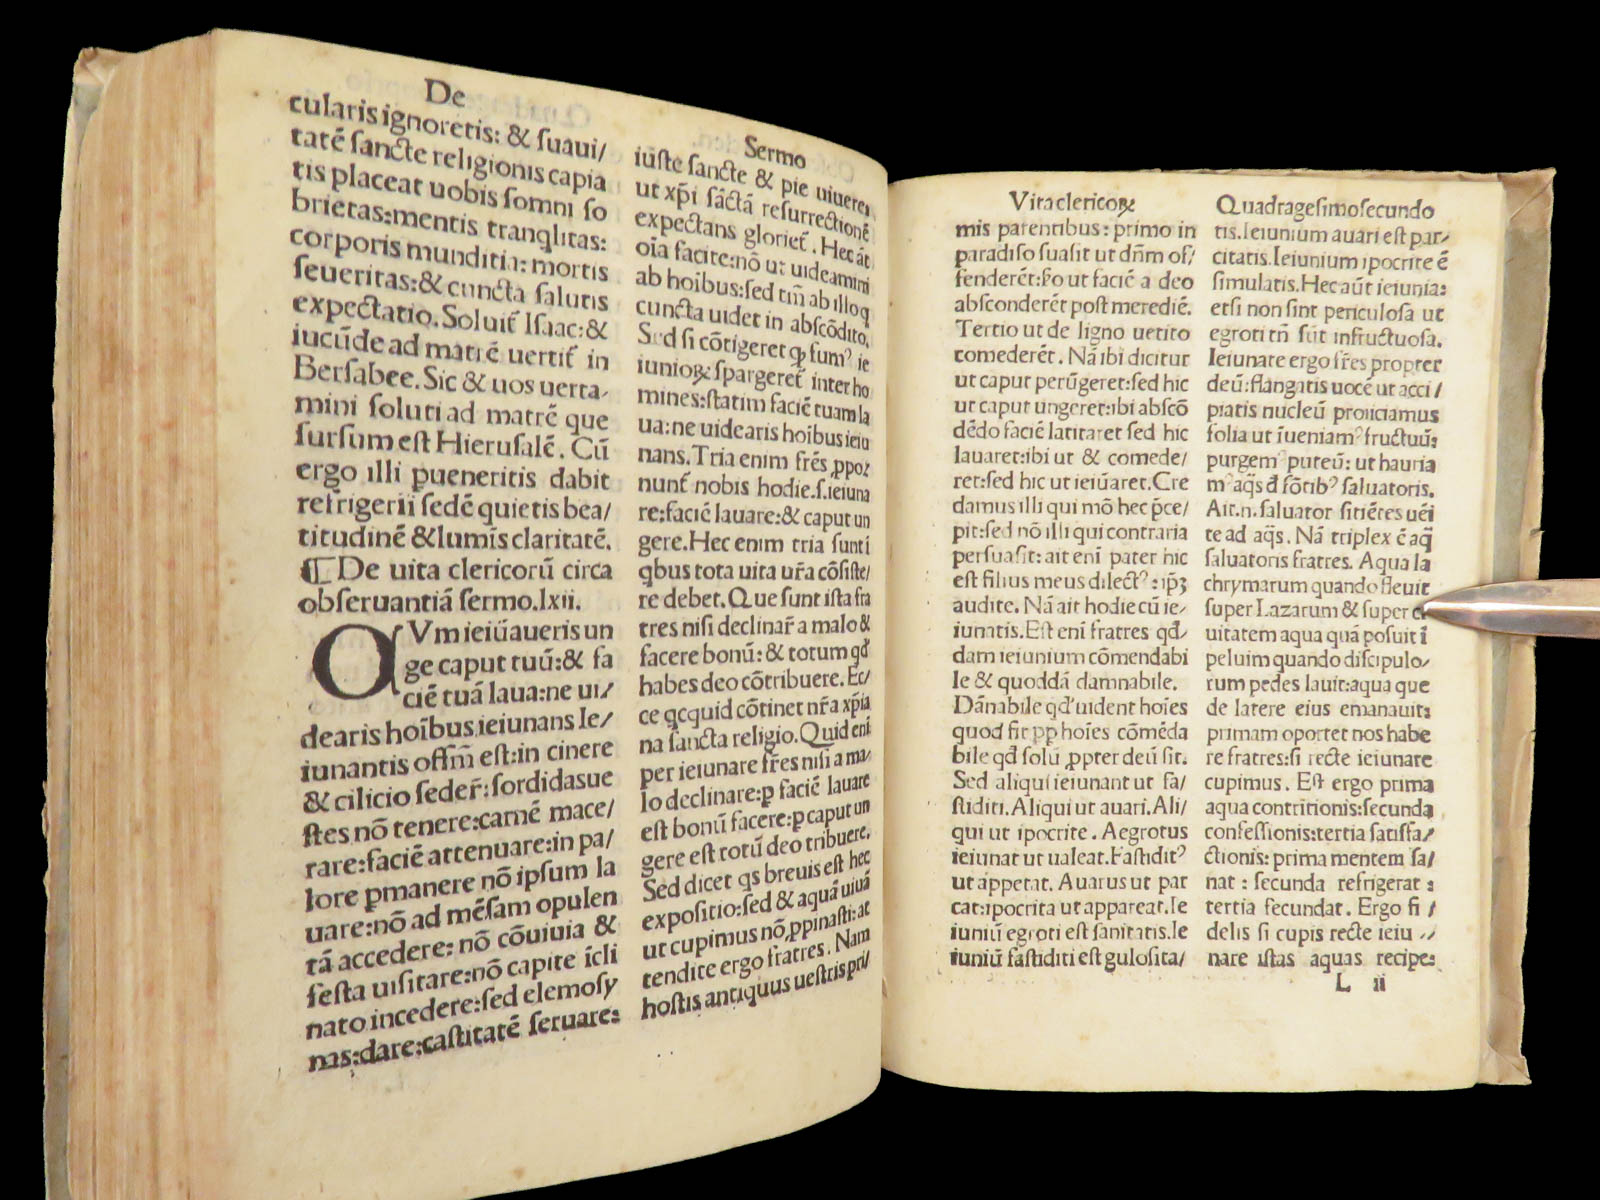 De
cularis ignoretis: & ſuaui/
tatē ſancte religionis capia
tis placeat uobis ſomni ſo
brietas:mentis tranq̇litas:
corporis munditia: mortis
ſeueritas:& cuncta ſalutis
expectatio. Soluit̄ Iſaac:&
iucūde ad matrē uertit̄ in
Berſabee. Sic & uos uerta/
mini ſoluti ad matrē que
ſurſum eſt Hieruſalē. Cū
ergo illi pueneritis dabit
refrigerii ſedē quietis bea/
titudinē &lumīs claritatē.
¶ De uita clericorū circa
obſeruantiā ſermo.lxii.
QVm ieiūaueris un
ge caput tuū:& fa
ciē tuā laua:ne ui/
dearis hoībus ieiunans Ie/
iunantis offīm eſt:in cinere
& cilicio ſeder̄:ſordidas ue
ſtes nō tenere:carnē mace/
rare:faciē attenuare:in pa/
lore ꝑmanere nō ipſum la
uare:nō ad mēſam opulen
tā accedere: nō cōuiuia &
feſta uiſitare:nō capite īcli
nato incedere:ſed elemoſy
nas:dare:caſtitatē ſeruare:
Sermo
iuſte ſancte & pie uiuere:
ut xp̄i ſāctā reſurrectionē
expectans gloriet̄. Hec āt
oīa facite:nō ut uideamini
ab hoībus:ſed tm̄ ab illo q
cuncta uidet in abſcōdito.
Sed ſi cōtigeret ꝙ fumꝰ ie
iunioꝝ ſpargeret̄ inter ho
mines:ſtatim faciē tuam la
ua:ne uidearis hoībus ieiu
nans. Tria enim frēs ꝓpo
nunt̄ nobis hodie.ſ.ieiuna
re:faciē lauare:& caput un
gere. Hec enim tria ſunt ī
qbus tota uita ur̄a cōſiſte/
re debet. Que ſunt iſta fra
tres niſi declinar̄ a malo &
facere bonū: & totum qd̄
habes deo cōtribuere. Ec/
ce qcquid cōtinet nr̄a xp̄ia
na ſancta religio. Quid eni
per ieiunare fr̄es niſi a ma/
lo declinare:ꝑ faciē lauare
eſt bonū facere:ꝑ caput un
gere eſt totū deo tribuere.
Sed dicet qs breuis eſt hec
expoſitio:ſed & aquā uiuā
ut cupimus nō ꝓpinaſti: at
tendite ergo fratres. Nam
hoſtis antiquus ueſtris pri/
Vita clericoꝝ
mis parentibus: primo in
paradiſo ſuaſit ut dn̄m of/
fenderēt: ut faciē a deo
abſconderēt poſt meredie.
Tertio ut de ligno uetito
comederēt. Nā ibi dicitur
ut caput perūgeret:ſed hic
ut caput ungeret:ibi abſcō
dēdo faciē latitaret ſed hic
lauaret:ibi ut & comede/
ret:ſed hic ut ieiūaret. Cre
damus illi qui mō hec p̄ce/
pit:ſed nō illi qui contraria
perſuaſit: ait eni pater hic
eſt filius meus dilectꝰ: ip̄ꝫ
audite. Nā ait hodie cū ie/
iunatis. Eſt eni fratres qd̄/
dam ieiunium cōmendabi
le & quoddā damnabile.
Dānabile qd̄ uident hoīes
quod fit ꝓp hoīes cōmēda
bile qd̄ ſolū ꝓpter deū ſit.
Sed aliqui ieiunant ut fa/
ſtiditi. Aliqui ut auari. Ali/
qui ut ipocrite. Aegrotus
ieiunat ut ualeat. Faſtiditꝰ
ut appetat. Auarus ut par
cat:ipocrita ut appareat. Ie
iuniū egroti eſt ſanitatis. Ie
iuniū faſtiditi eſt guloſita/
Quadrageſimoſecundo
tis. Ieiunium auari eſt par/
citatis. Ieiunium ipocrite ē
ſimulatis. Hec aūt ieiunia:
etſi non ſint periculoſa ut
egroti tn̄ ſūt infructuoſa.
Ieiunate ergo fr̄es propter
deū:flangatis uocē ut acci/
piatis nucleū proiiciamus
folia ut iueniamꝰ fructuū:
purgemꝰ puteū: ut hauria
mꝰ aq̄s d̄ fōtibꝰ ſaluatoris.
Ait.n.ſaluator ſitiētes uēi
te ad aq̄s. Nā triplex ē aq̄
ſaluatoris fratres. Aqua la
chrymarum quando fleuit
ſuper Lazarum & ſuper ci
uitatem aqua quā poſuit ī
peluim quando diſcipulo/
rum pedes lauit:aqua que
de latere eius emanauit:
primam oportet nos habe
re fratres:ſi recte ieiunare
cupimus. Eſt ergo prima
aqua contritionis:ſecunda
confeſſionis:tertia ſatiſfa/
ctionis: prima mentem ſa/
nat: ſecunda refrigerat:
tertia fecundat. Ergo fi/
delis ſi cupis recte ieiu//
nare iſtas aquas recipe:
L ii